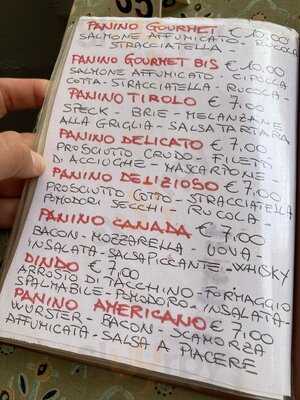 PANINO GOURMET € 10.00
SALMONE AFFUMICATO - RUCOLA
STRACCIATELLA -
PANINO GOURMET BIS € 10.00
SALMONE AFFUMICATO - CIPOLLA
COTTA - STRACCIATELLA - RUCOLA -
PANINO TIROLO € 7,00
SPECK - BRIE - MELANZANE
ALLA GRIGLIA - SALSA TARTARA
PANINO DELICATO € 7,00
PROSCIUTTO CRUDO - FILETTI
D'ACCIUGHE - MASCARPONE -
PANINO DELIZIOSO € 7,00
PROSCIUTTO COTTO - STRACCIATELLA
POMODORI SECCHI - RUCOLA -
PANINO CANADA € 7,00
BACON - MOZZARELLA - UOVA -
INSALATA - SALSA PICCANTE - WHISKY
DINDO € 7,00
ARROSTO DI TACCHINO - FORMAGGIO
SPALMABILE - POMODORO - INSALATA -
PANINO AMERICANO € 7,00
WURSTER - BACON - SCAMORZA
AFFUMICATA - SALSA A PIACERE